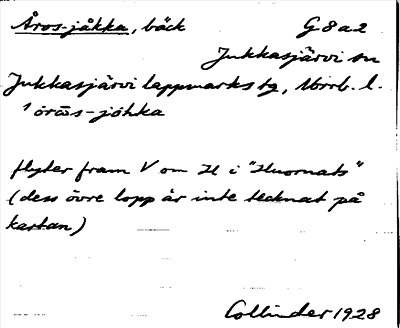 Åros-jåkka, bäck G 8 a 2
Jukkasjärvi sn
Jukkasjärvi lappmarks tg, Norrb. l.
¹örōs̄-jòhka
flyter fram V om H i "Huornats"
(dess övre lopp är inte tecknat på
kartan)
Collinder 1928